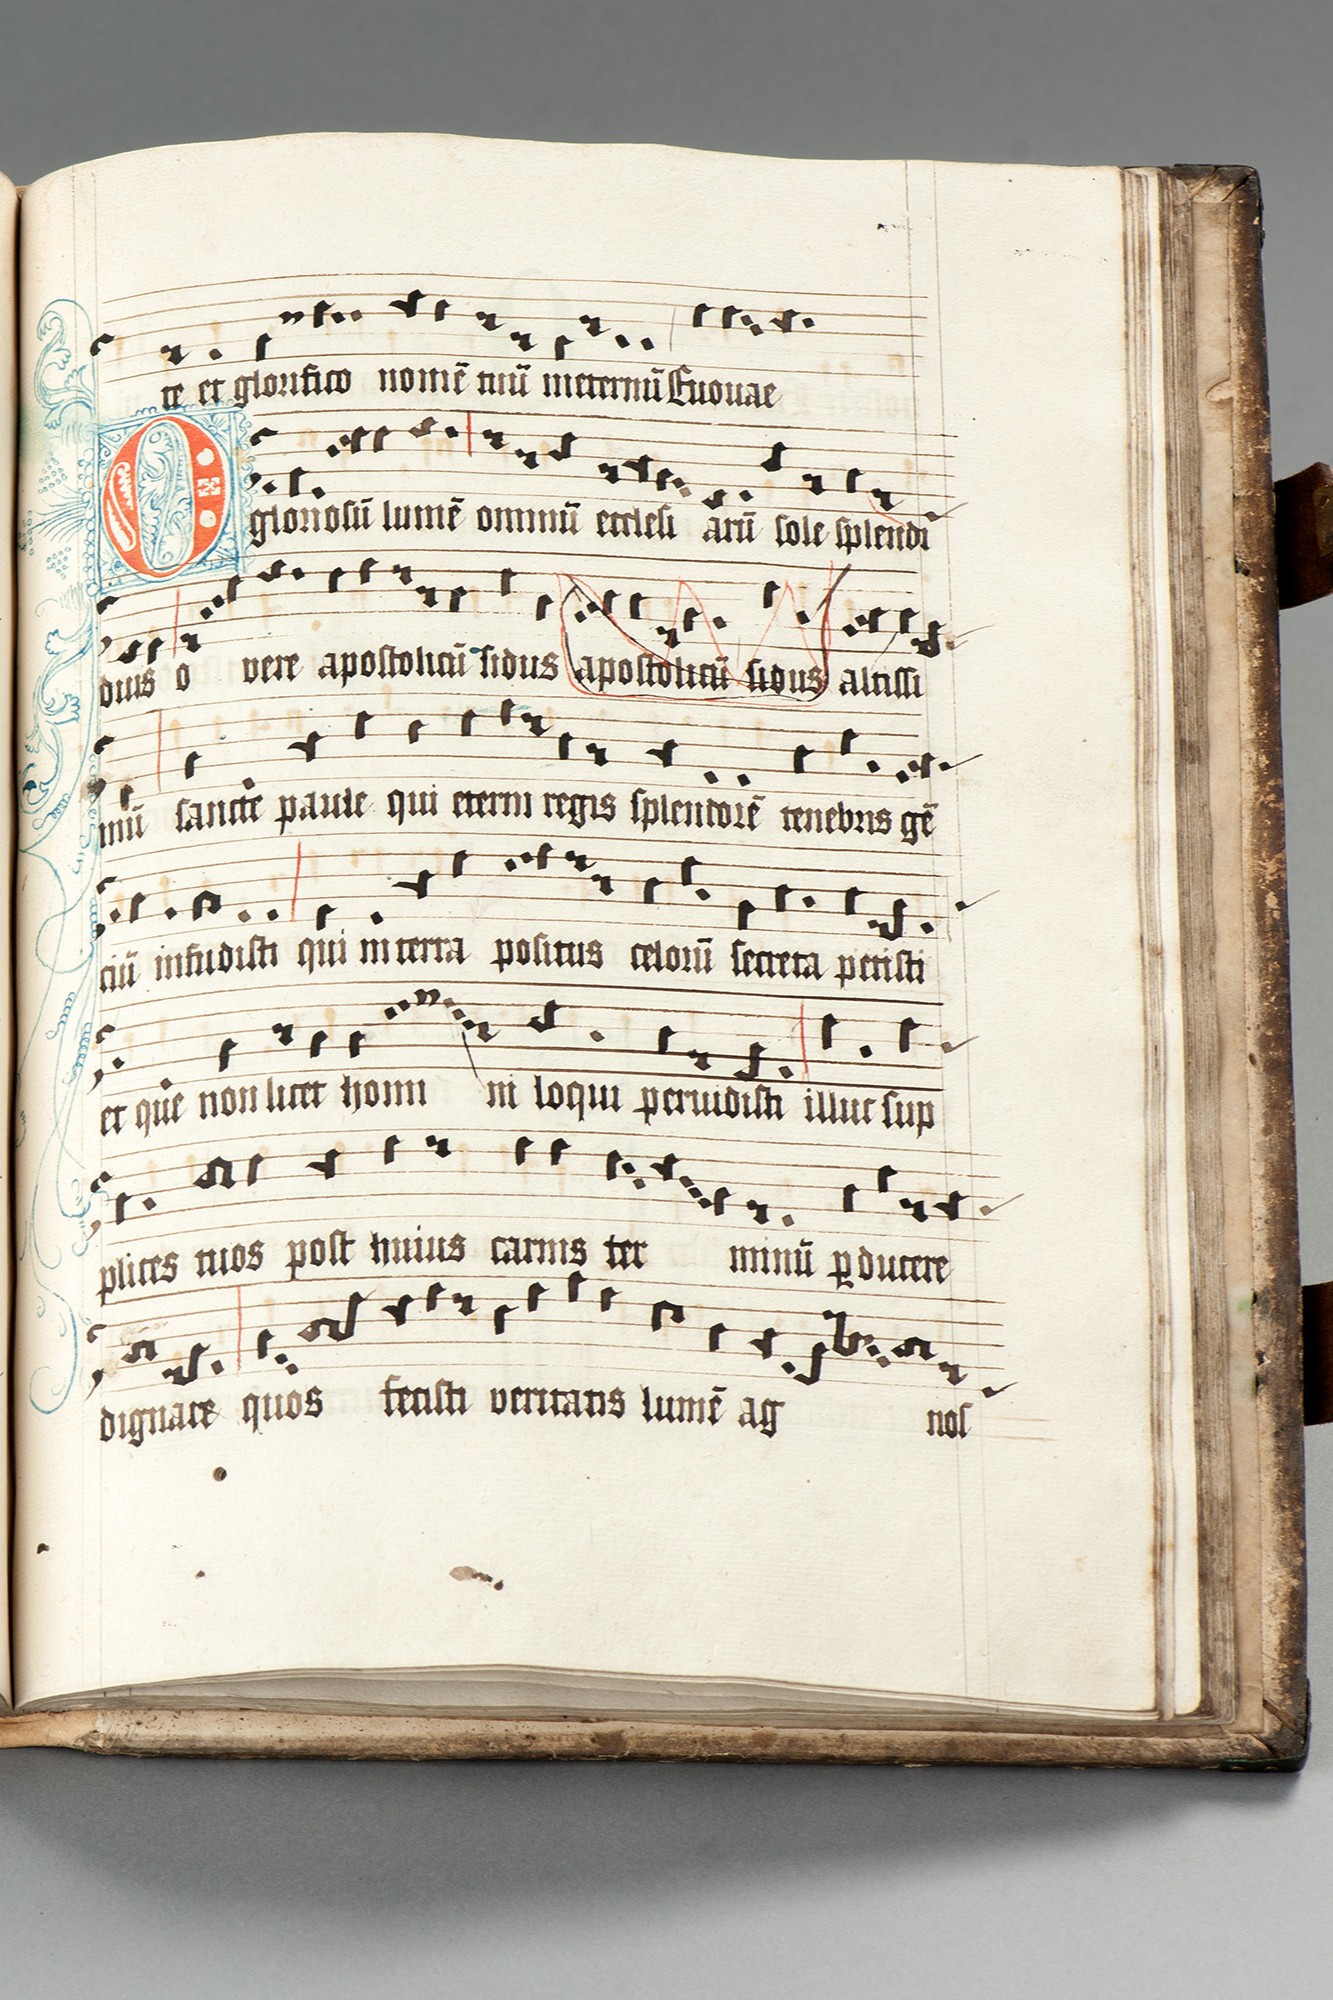 te et glorifico nomē tuū ineternū Euouae
O gloriosū lumē omniū ecclesi arū sole splendi
dius o vere apostolicū sidus apostolicū sidus altissi
mū sancte paule qui eterni regis splendorē tenebris gē
ciū infudisti qui in terra positus celorū secreta petisti
et que non licet homi ni loqui peruidisti illuc sup
plices tuos post huius carnis ter minū ꝑducere
dignare quos fecisti veritatis lumē ag nos